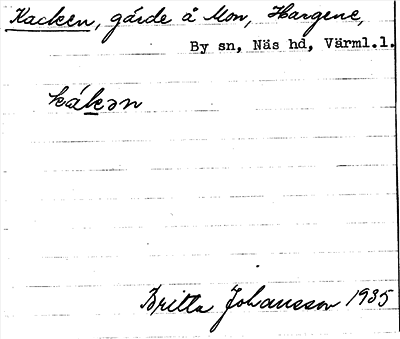 Kacken, gärde å Mon, Hargene,
By sn, Näs hd, Värml.l.
kákən
Britta Johansson 1935